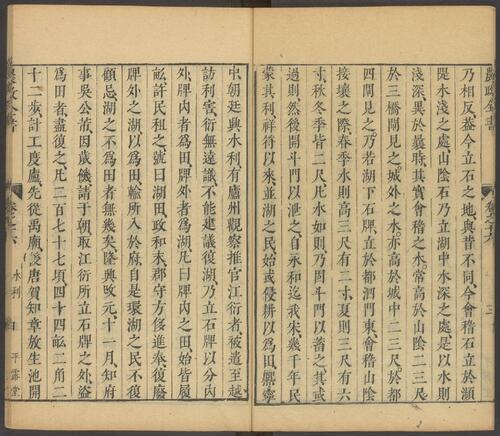 乃相反葢今立石之地與昔不同今會稽石立於瀕
隄水淺之處山陰石乃立湖中水深之處是以水則
淺深異於曩時其實會稽之水常高於山陰二三尺
於三橋閘見之城外之水亦高於城中二三尺於都
四閘見之乃若湖下石牌立於都泗門東會稽山陰
接壤之際春季水則高三尺有二寸夏則三尺有六
寸秋冬季皆二尺凡水如則乃閘斗門以蓄之其或
過則然後開斗門以泄之自永和迄我宋幾千年民
蒙其利祥符以來並湖之民始或侵耕以為田熙寧
中朝廷興水利有廬州觀察推官江衍者被遣至越
訪利害衍無遠識不能建議復湖乃立石牌以分內
外牌內者為田牌外者為湖凡曰牌內之田始皆履
畝許民租之號曰湖田政和末郡守方侈進奉復廢
牌外之湖以為田輸所入於府自是環湖之民不復
顧忌湖之不為田者無幾矣隆興改元十一月知府
事吳公芾因歲饑請于朝取江衍所立石牌之外盜
為田者盡復之凡二百七十七頃四十四畝二角二
十二步計工度廬先從禹廟後唐賀知章放生池開
農政全書
卷之十六
水利
平露堂